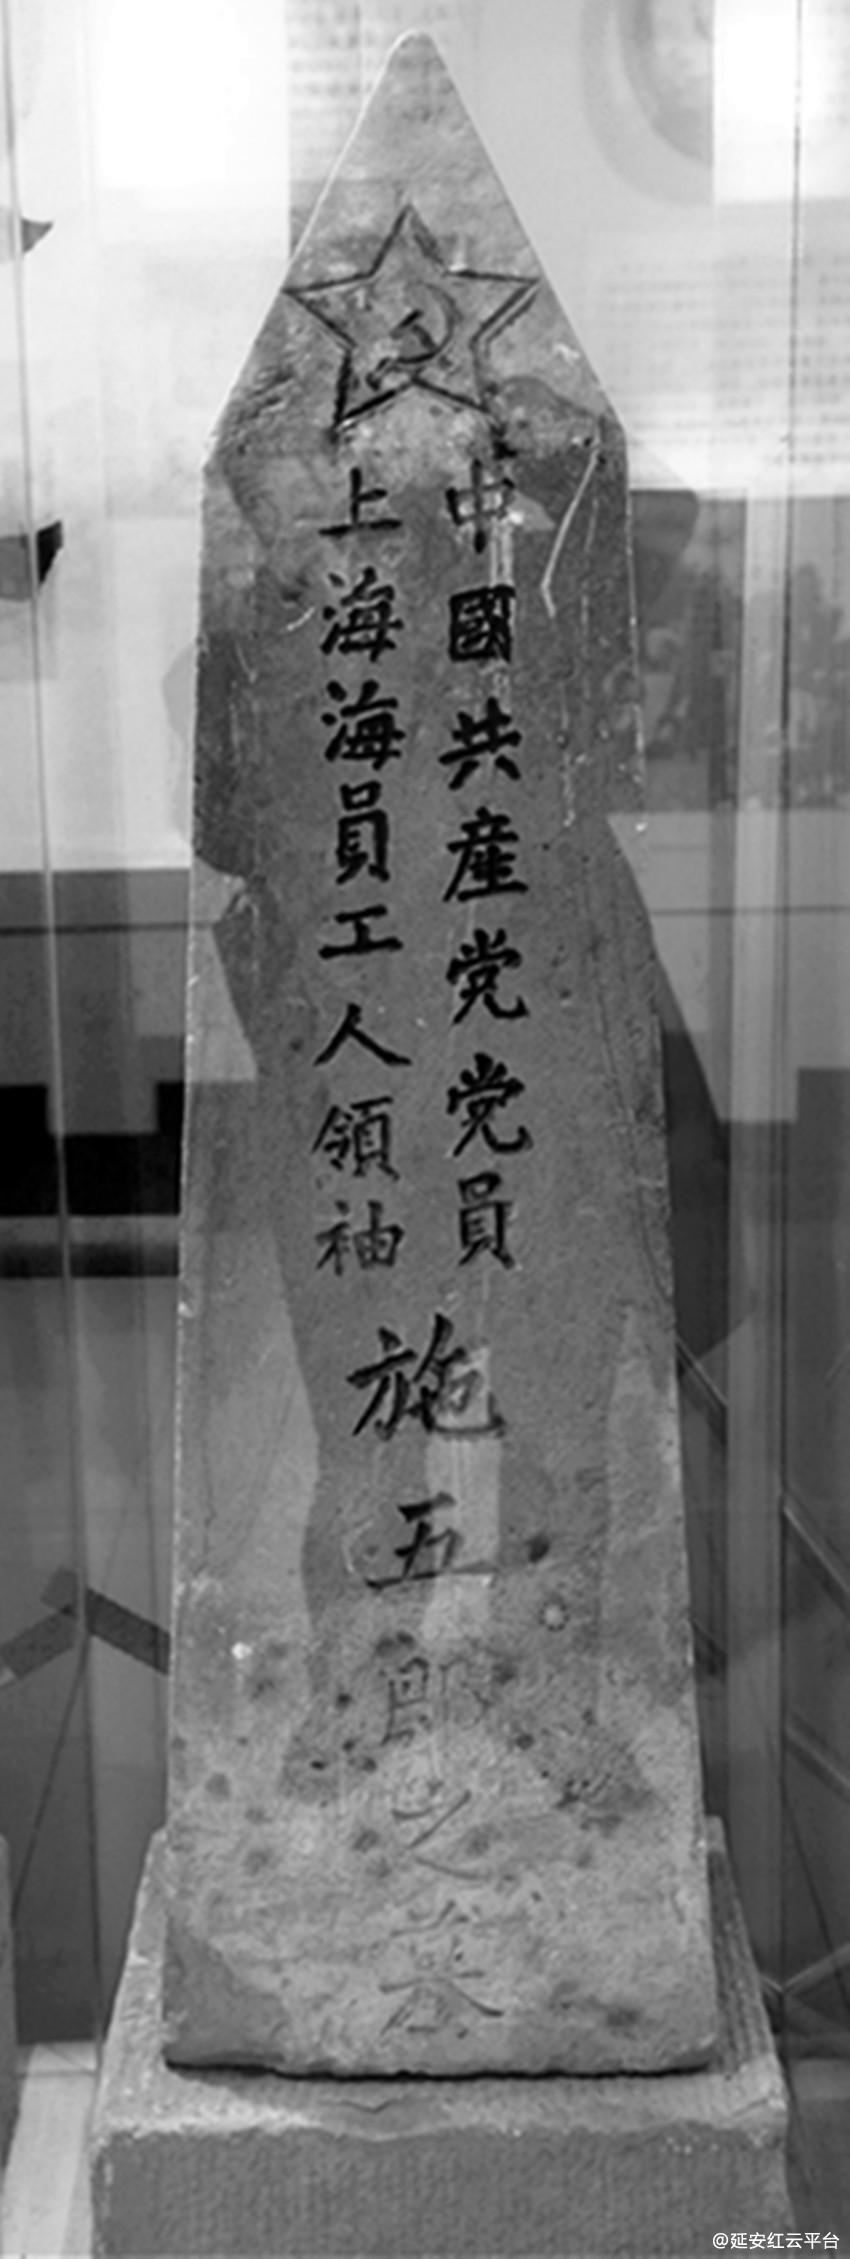 中國共産党党員
上海海員工人領袖
施五郎之墓
@延安红云平台